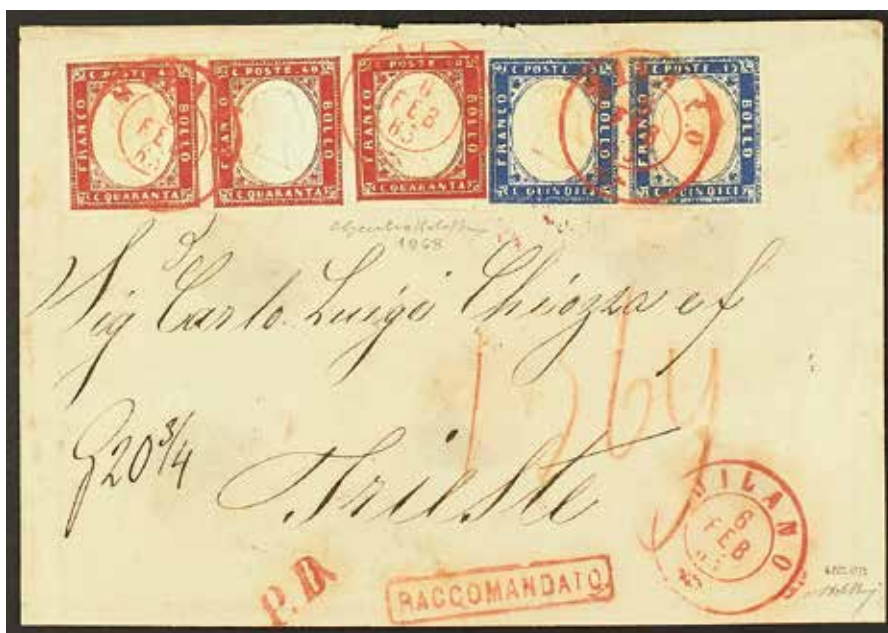 C. POSTE 4
FRANCO
BOLLO
C. QUARANTA
C. POSTE 40
FRAN O
BOLLO
C. QUARANTA
C. POSTE
FRANCO
BOLLO
C. QUARANTA
C. POSTE 15
FRANCO
BOLLO
C. QUINDICI
C. POSTE 15
FRANCO
BOLLO
C. QUINDICI
FEB
63
6
FEB
63
FEB
1968
Sig Carlo Luigi Chiozza e f
20 3/4
Trieste
MILANO
6
FEB
P.D.
RACCOMANDATO